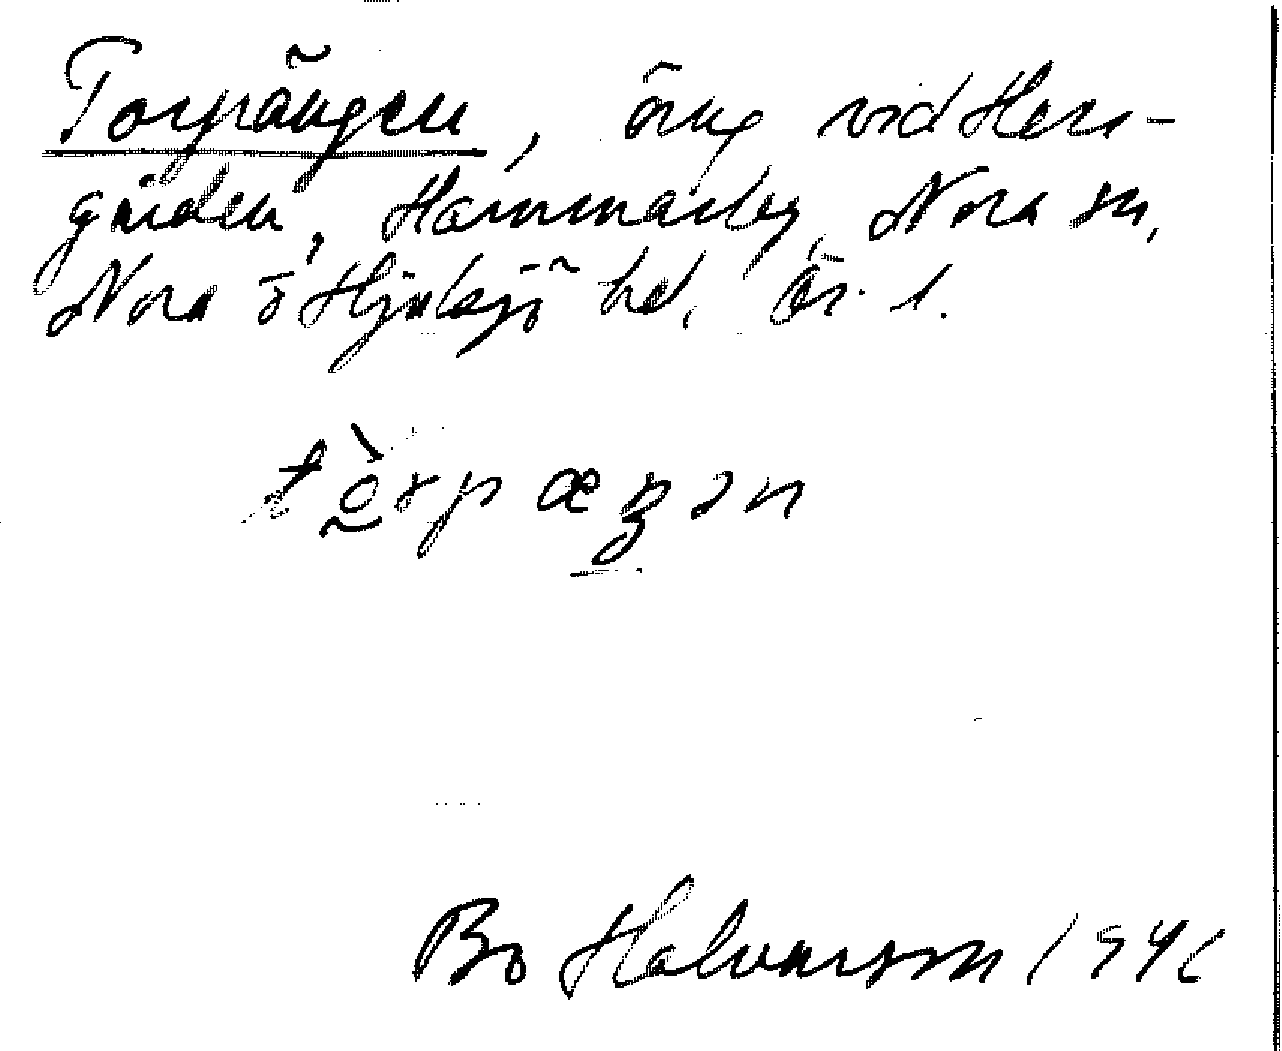 Torpängen, äng vid Herr-
gården, Hammarby, Nora sn,
Nora o Hjulsjö hd, Ör. l.
Bo Halvarsson 1946